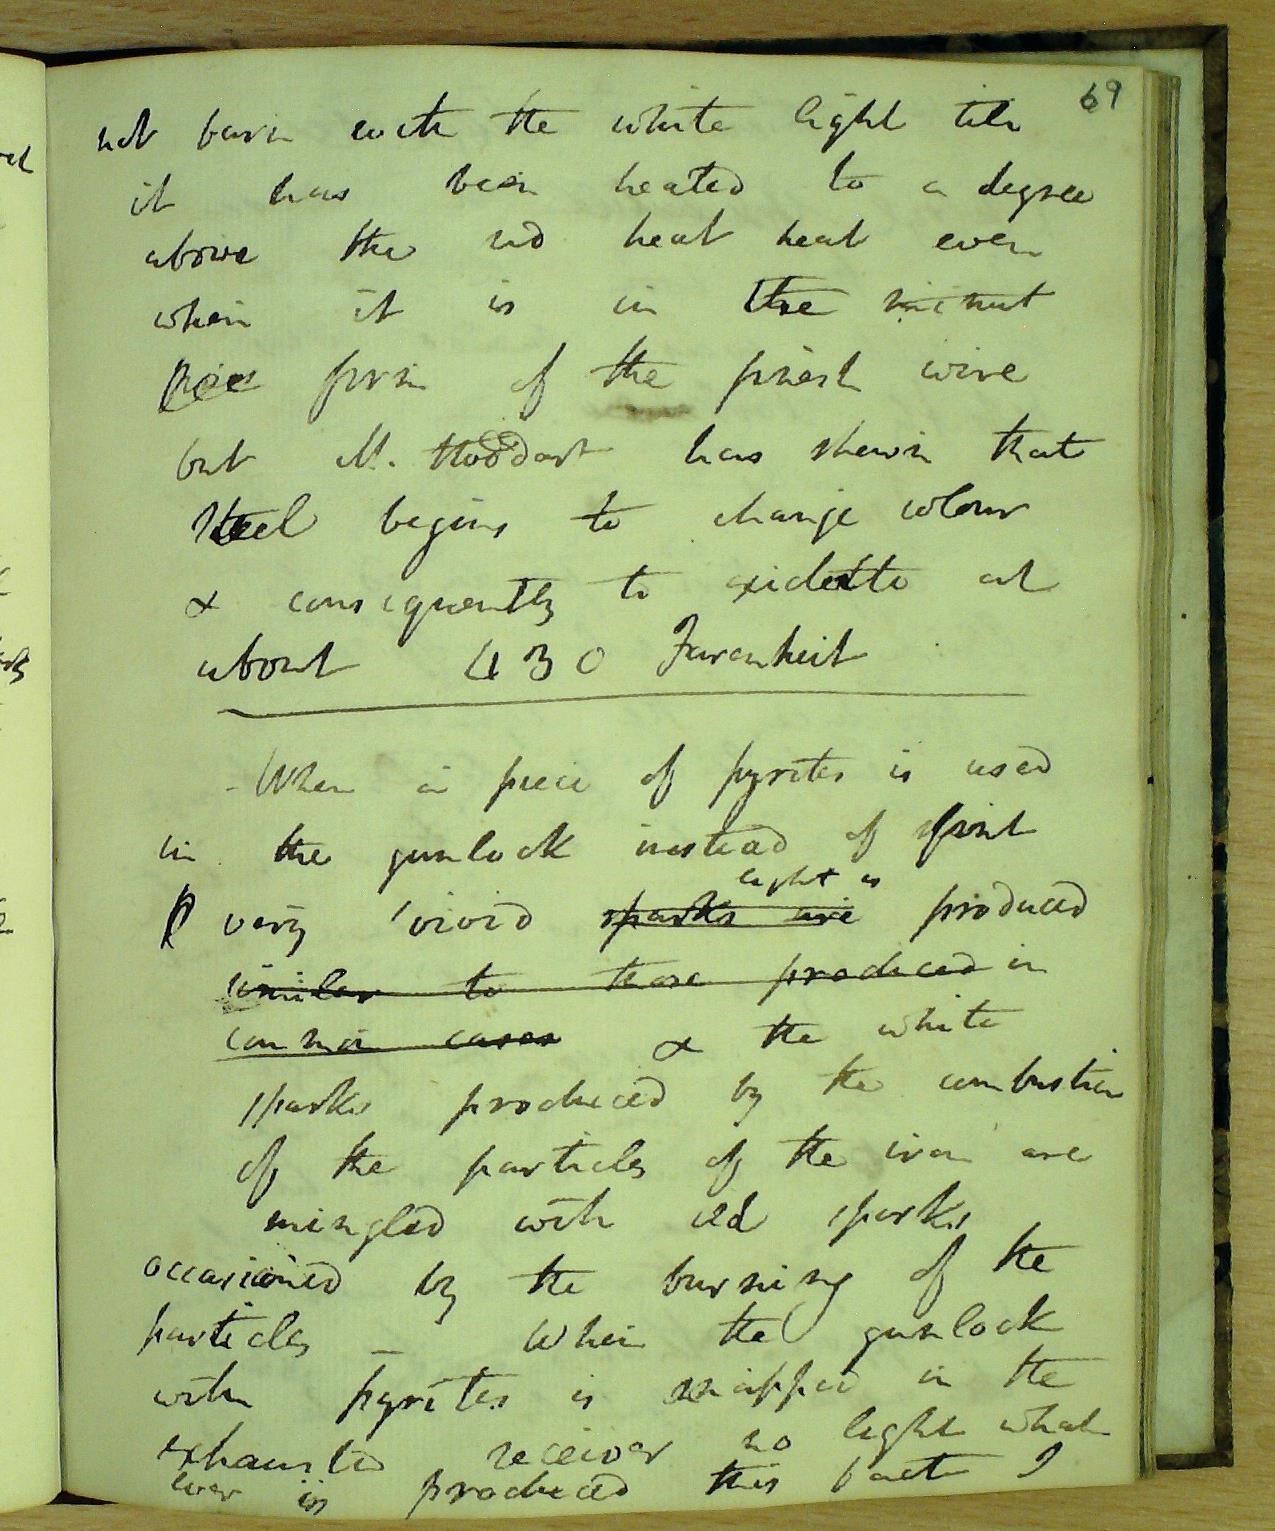 69
not burn with the white light till
it has been heated to a degree
above the red heat heat even
when it is in the minut
form of the finest wire
but M. Stoddart has shewn that
steel begins to change colour
& consequently to oxidate at
about 430 Farenheit
- When a piece of pyrites is used
in the gunlock instead of flint
light is
very vivid sparks are produced
similar to those produced in
common cases & the white
sparks produced by the combustion
of the particles of the iron are
mingled with red sparks
occasioned by the burning of the
particles _ When the gunlock
with pyrites is snapped in the
exhausted receiver no light what
ever is produced this fact I